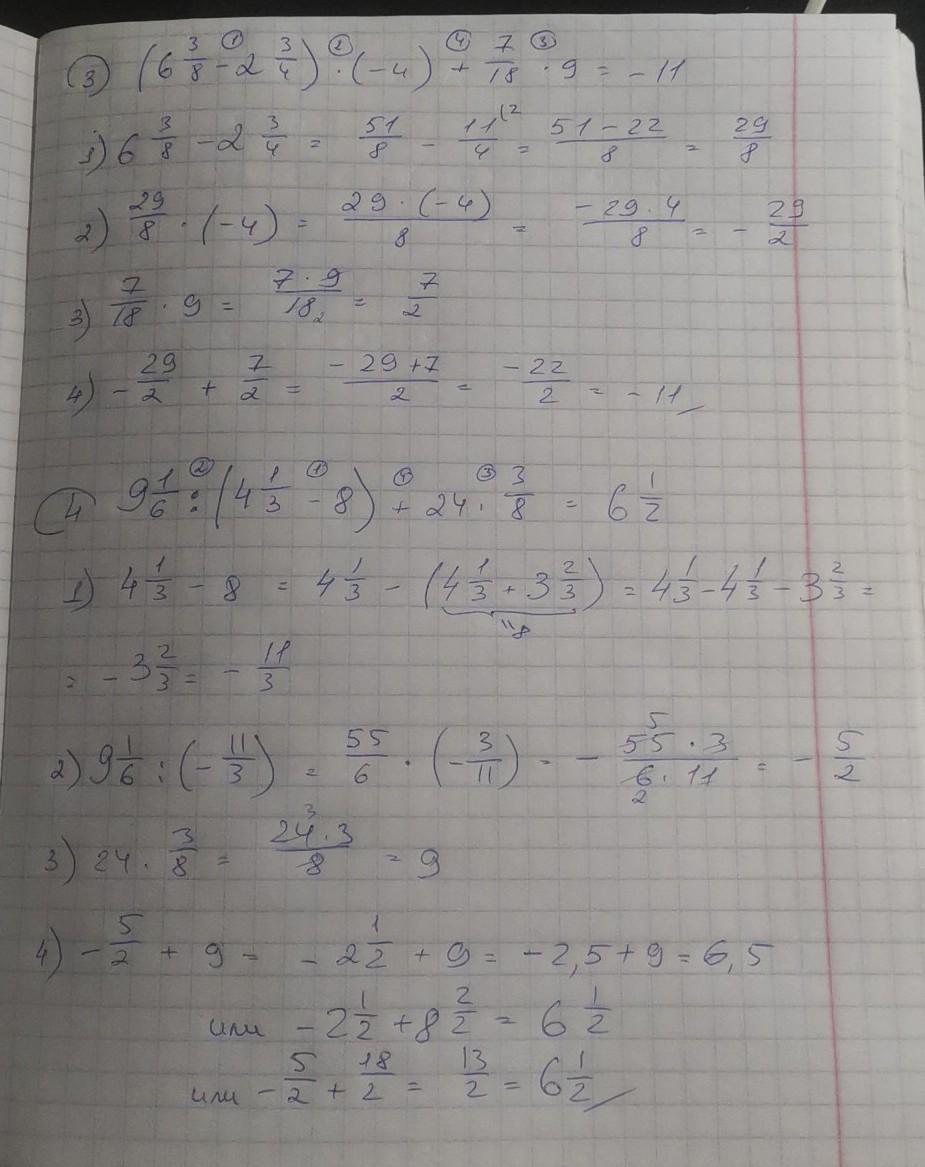 3) (6 3/8 - 2 3/4) · (-4) + 7/18 · 9 = -11
1) 6 3/8 - 2 3/4 = 51/8 - 11/4 (2 = (51-22)/8 = 29/8
2) 29/8 · (-4) = (29 · (-4))/8 = (-29 · 4)/8 = - 29/2
3) 7/18 · 9 = (7 · 9)/18 2 = 7/2
4) - 29/2 + 7/2 = (-29+7)/2 = -22/2 = -11
4) 9 1/6 : (4 1/3 - 8) + 24 · 3/8 = 6 1/2
1) 4 1/3 - 8 = 4 1/3 - (4 1/3 + 3 2/3) = 4 1/3 - 4 1/3 - 3 2/3 =
"8
= - 3 2/3 = - 11/3
2) 9 1/6 : (- 11/3) = 55/6 · (- 3/11) = - (55 5 · 3)/(6 2 · 11) = - 5/2
3) 24 · 3/8 = (24 3 · 3)/8 = 9
4) - 5/2 + 9 = - 2 1/2 + 9 = -2,5 + 9 = 6,5
или - 2 1/2 + 8 2/2 = 6 1/2
или - 5/2 + 18/2 = 13/2 = 6 1/2